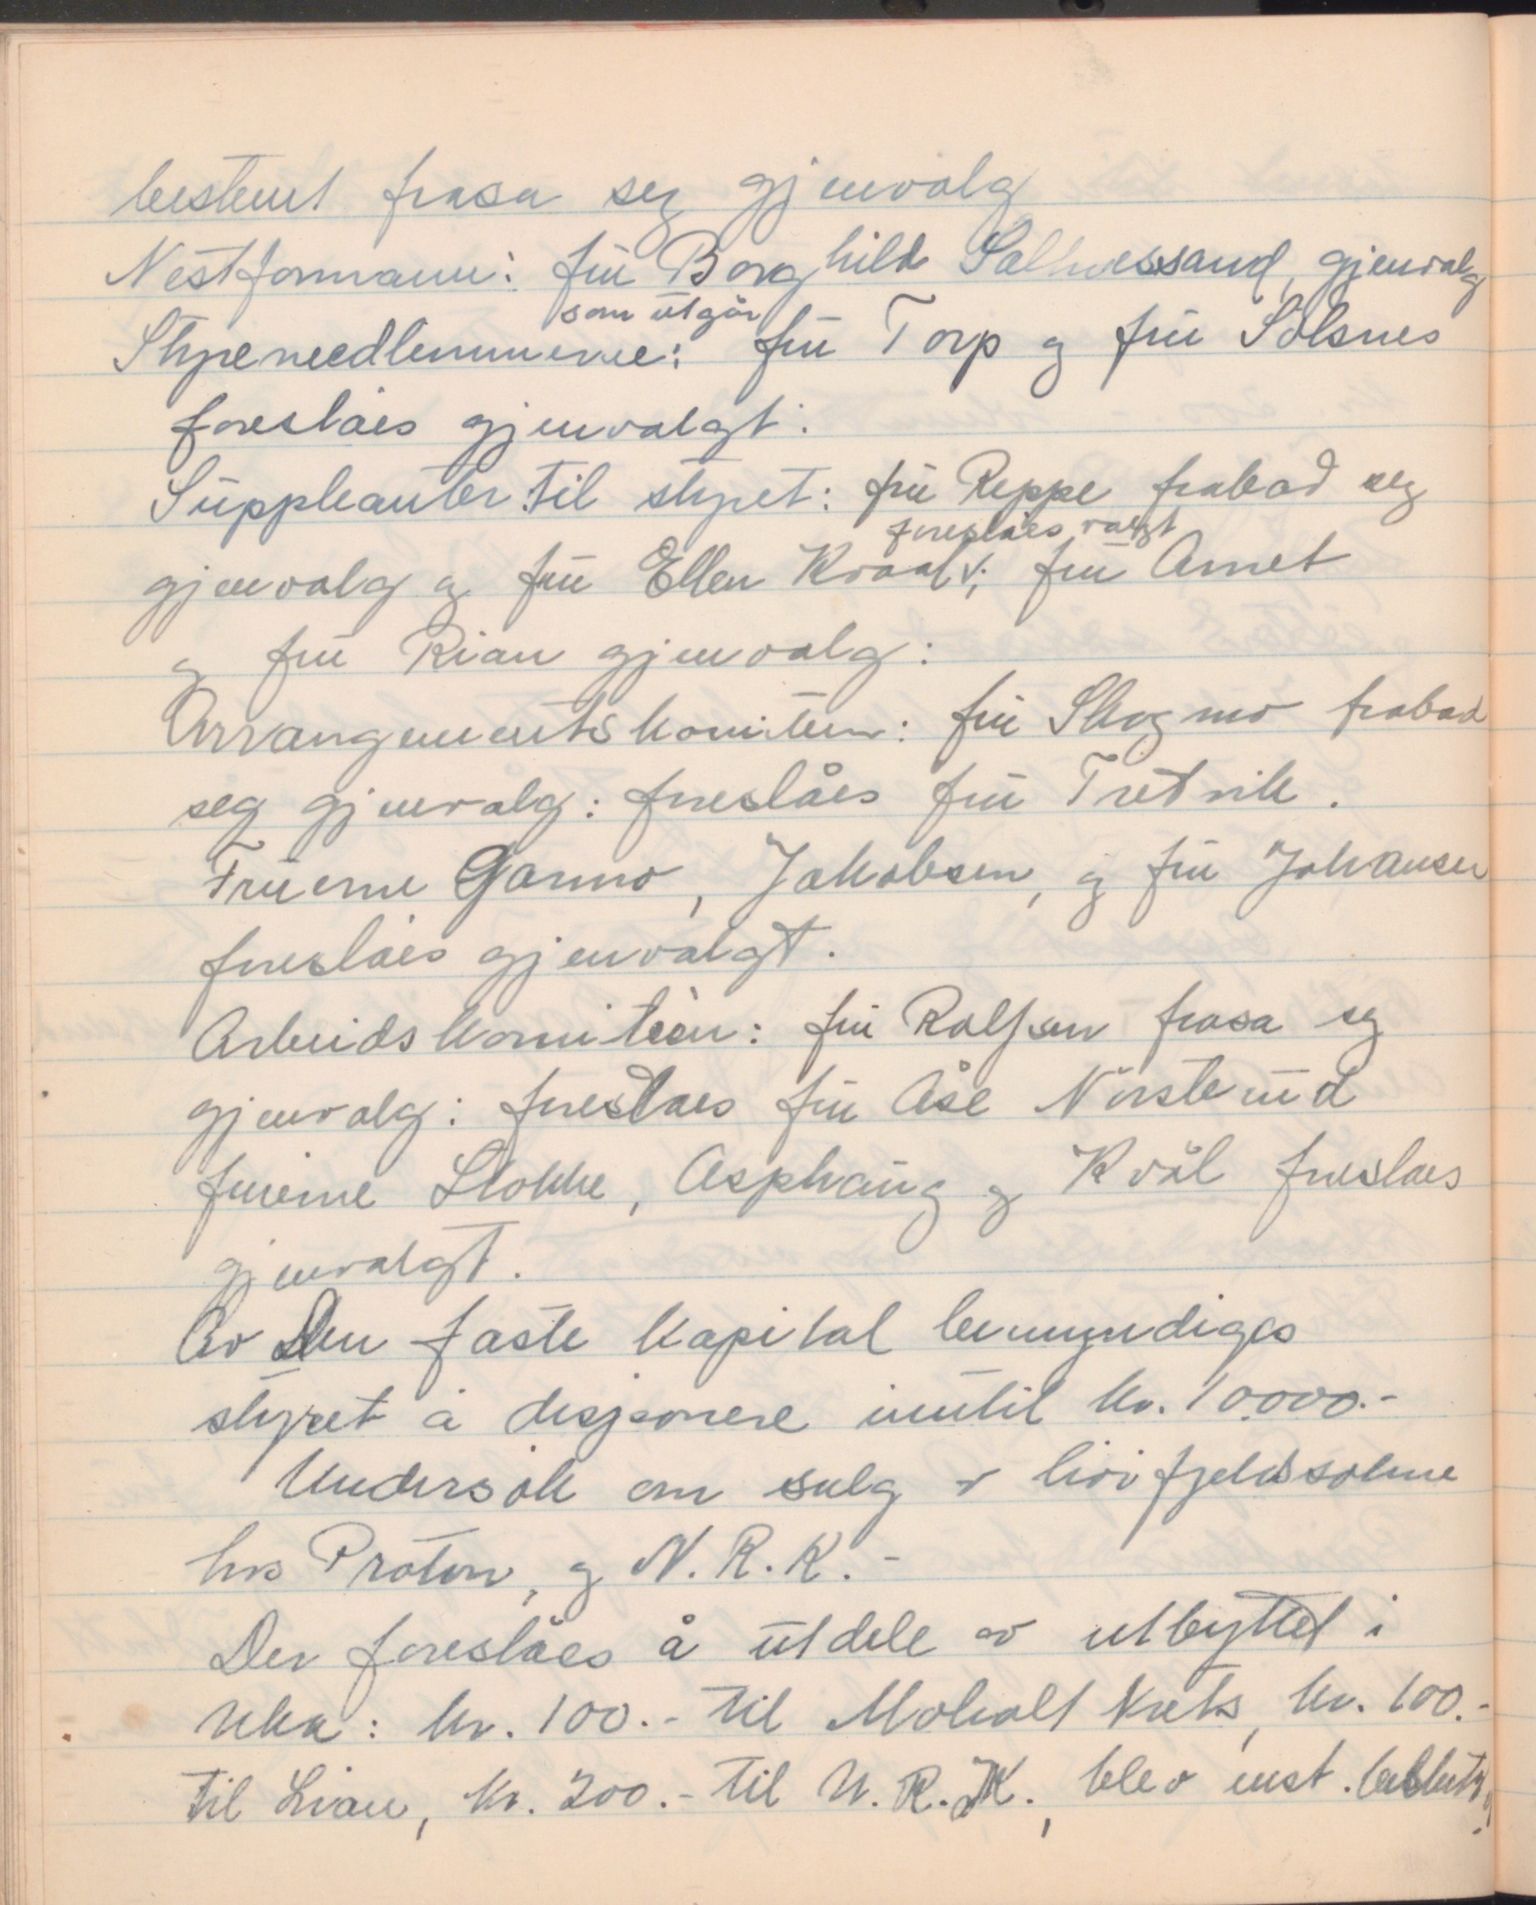 bestemt frasa seg gjenvalg
Nestformann: fru Borghild Salhussand, gjenvalg
som utgår
Styremedlemmerne: fru Torp og fru Solsnes
foreslåes gjenvalgt.
Suppleanter til styret: fru Reppe frabad seg
foreslåes valgt
gjenvalg og fru Ellen Kvaal; fru Arnet
og fru Rian gjenvalg:
Arrangementskomiteen: fru Skogmo frabad
seg gjenvalg: foreslåes fru Tretvik.
Fruerne Garmo, Jakobsen, og fru Johansen
foreslåes gjenvalgt.
Arbeidskomitéen: fru Rolfsen frasa seg
gjenvalg: foreslaes fru Åse Norsterud
fruerne Stokke, Asphaug og Kvål foreslaes
gjenvalgt.
Av Den faste kapital bemyndiges
styret å disponere inntil kr. 10.000.-
Undersøk om salg av höifjeldssolene
hos Proton, og N. R. K. -
Der foreslåes å utdele av utbyttet i
Uka: kr. 100.- til Moholt krets, kr. 100.-
til Lian, kr. 200.- til N. R. K., blev enst. besluttet.